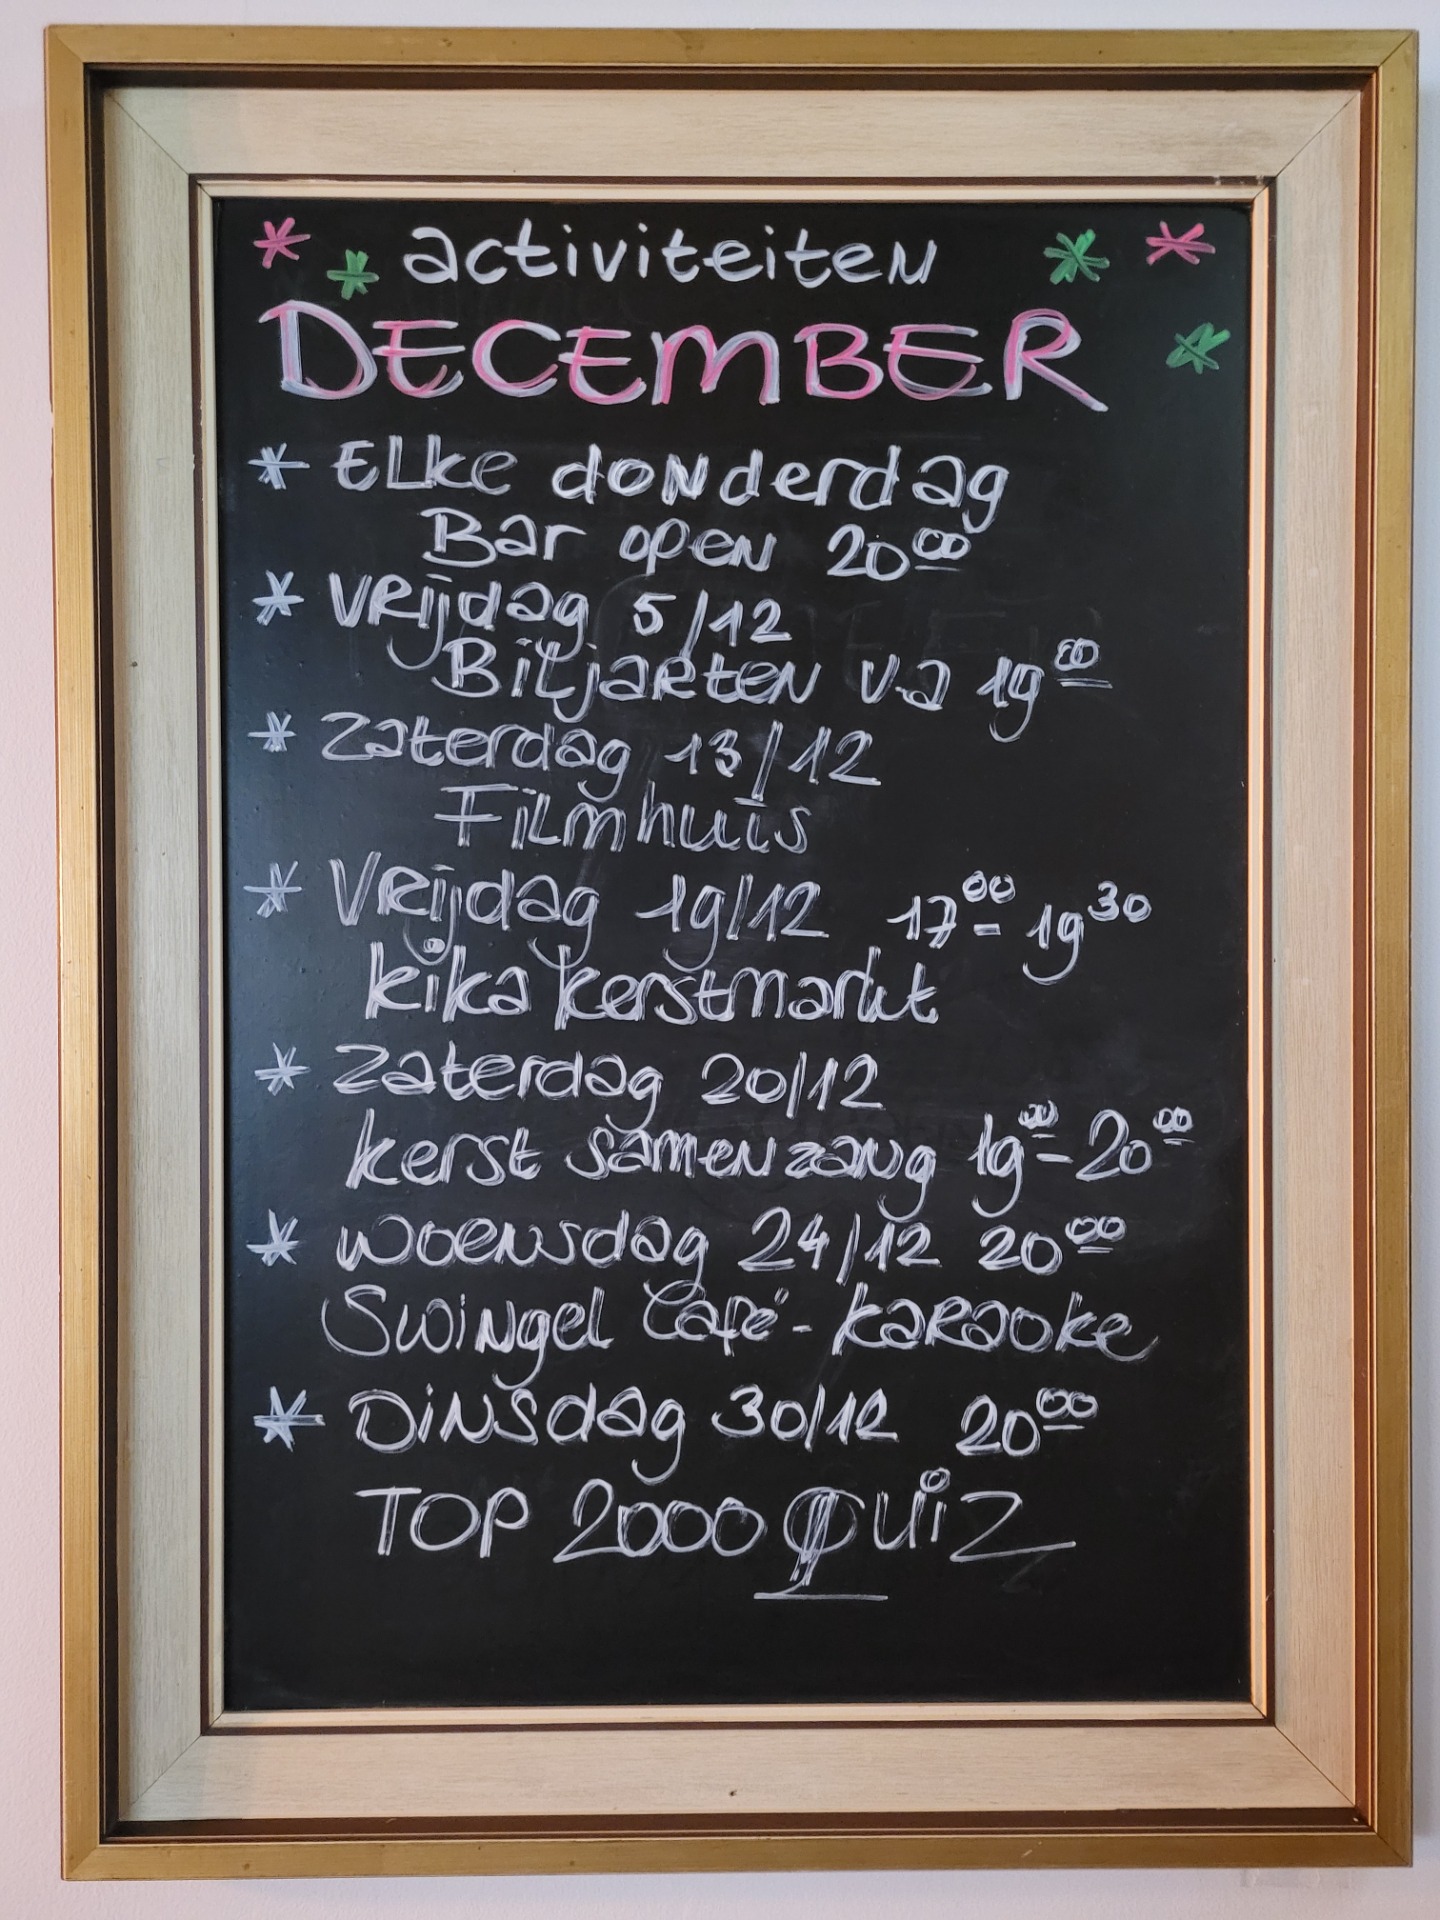 * activiteiten * *
*
DECEMBER *
* Elke donderdag
Bar open 20 00
* Vrijdag 5/12
Biljarten v.a 19 00
* Zaterdag 13/12
Filmhuis
* Vrijdag 19/12 17 00 - 19 30
kika kerstmarkt
* Zaterdag 20/12
kerst samenzang 19 00 - 20 00
* woensdag 24/12 20 00
Swingel Café - karaoke
* Dinsdag 30/12 20 00
TOP 2000 QUIZ